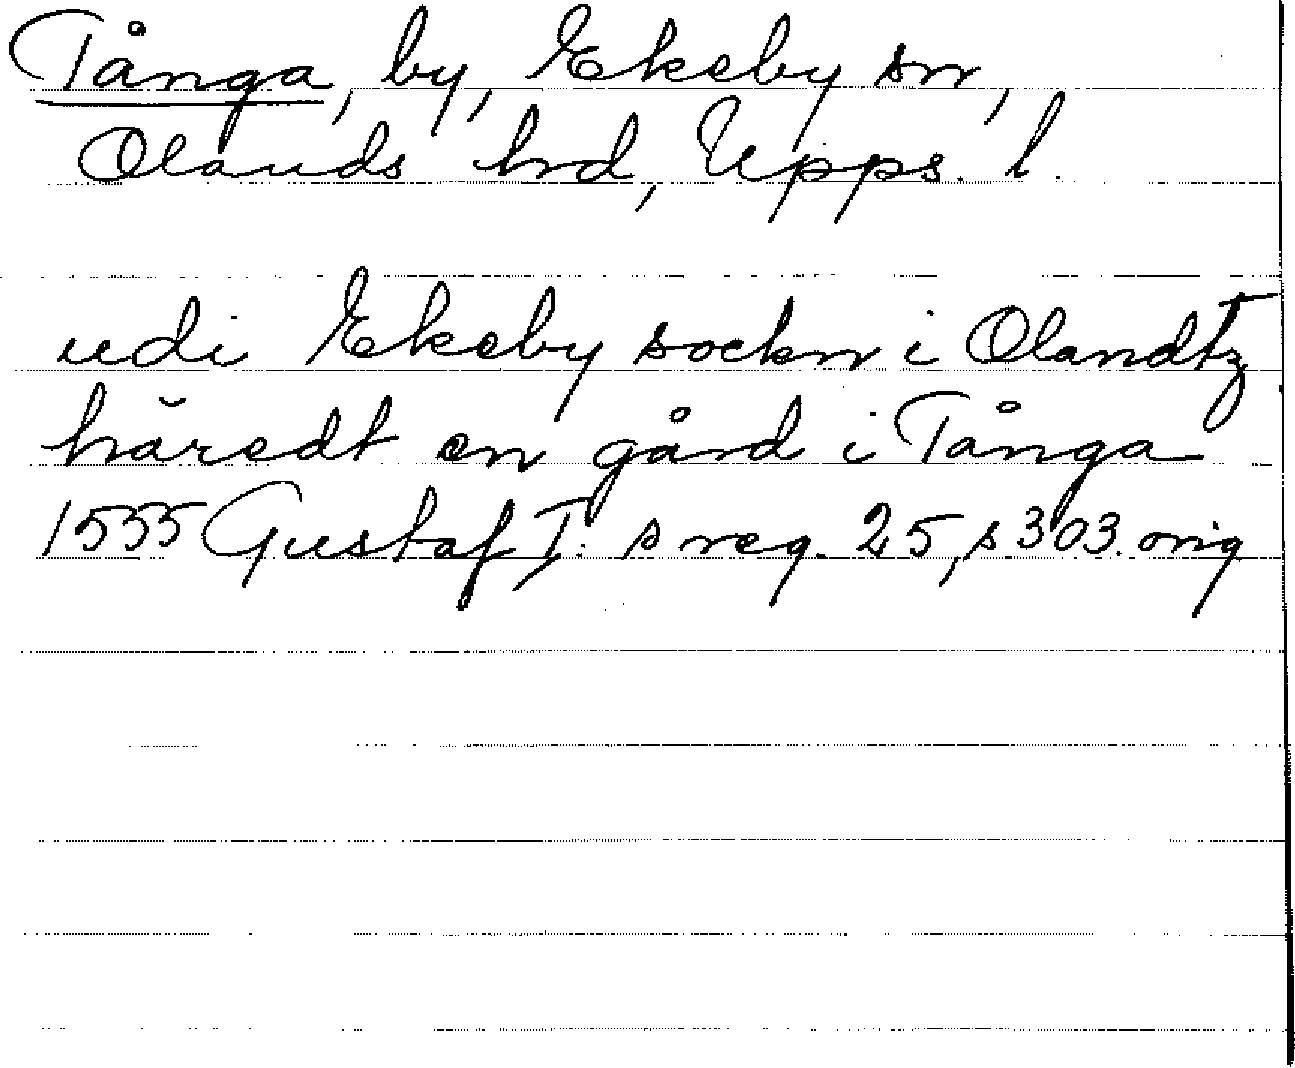 Tånga, by, Ekeby sn,
Olands hrd, Upps. l.
udi Ekeby sockn i Olandtz
häredt en gård i Tånga
1555 Gustaf I: s reg. 25, s 303. orig